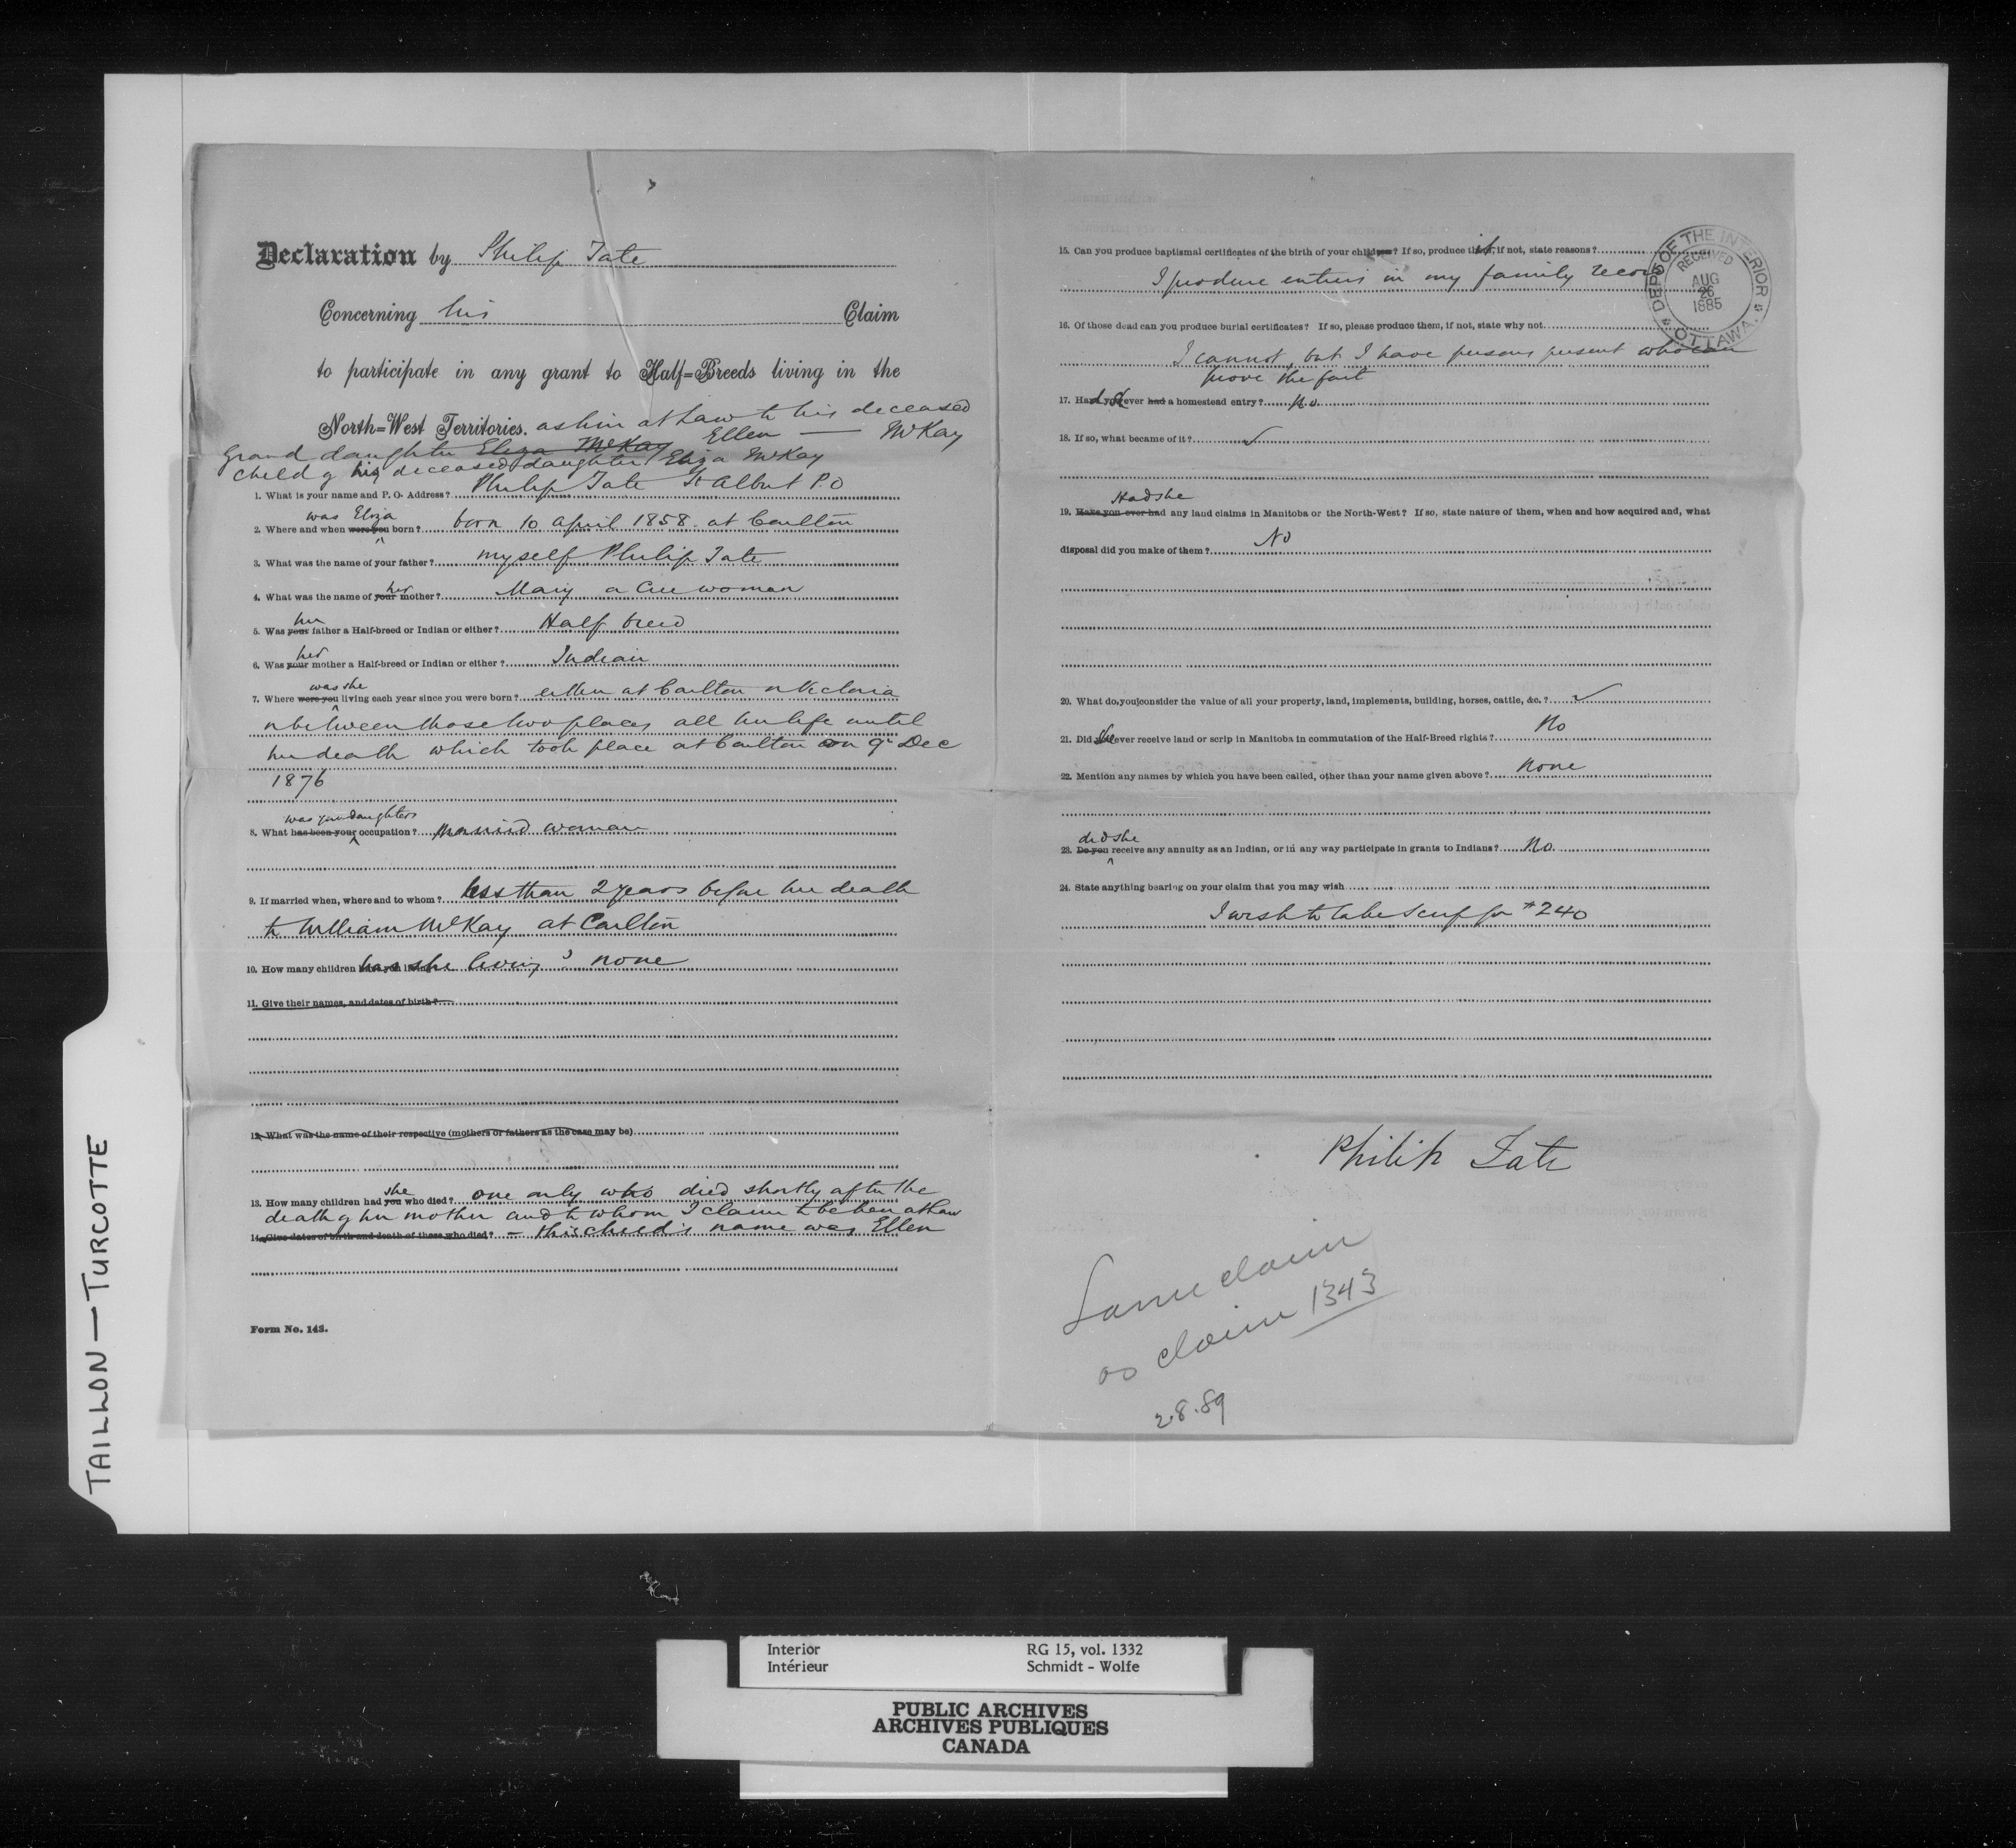 Declaration by Philip Tate
Concerning his Claim
to participate in any grant to Half=Breeds living in the
North=West Territories. as heir at Law to his deceased
grand daughter Eliza McKay Ellen — McKay
child of his deceased daughter Eliza McKay
1. What is your name and P. O. Address? Philip Tate St Albert P.O
was Eliza
2. Where and when were you born? born 10 April 1858. at Carlton
3. What was the name of your father? myself Philip Tate
her
4. What was the name of your mother? Mary a Cree woman
her
5. Was your father a Half-breed or Indian or either? Half breed
her
6. Was your mother a Half-breed or Indian or either? Indian
was she
7. Where were you living each year since you were born? either at Carlton or Victoria
or between those two places all her life until
her death which took place at Carlton on 9th Dec
1876
was your daughters
8. What has been your occupation? Married woman
9. If married when, where and to whom? less than 2 years before her death
to William McKay at Carlton
10. How many children has she living? none
11. Give their names, and dates of birth?
12. What was the name of their respective (mothers or fathers as the case may be)
she
13. How many children had you who died? one only who died shortly after the
death of her mother and to whom I claim to be heir at Law
14. Give dates of birth and death of those who died? - this child's name was Ellen
Form No. 143.
15. Can you produce baptismal certificates of the birth of your children? If so, produce it, if not, state reasons?
I produce entries in my family record
16. Of those dead can you produce burial certificates? If so, please produce them, if not, state why not
I cannot, but I have persons present who can
prove the fact
17. Had you ever had a homestead entry? No
18. If so, what became of it? ✓
Had she
19. Have you ever had any land claims in Manitoba or the North-West? If so, state nature of them, when and how acquired and, what
disposal did you make of them? No
20. What do you consider the value of all your property, land, implements, building, horses, cattle, &c.? ✓
21. Did she ever receive land or scrip in Manitoba in commutation of the Half-Breed rights? No
22. Mention any names by which you have been called, other than your name given above? None
did she
23. Do you receive any annuity as an Indian, or in any way participate in grants to Indians? No.
24. State anything bearing on your claim that you may wish
I wish to take scrip for $240
Philip Tate
Same claim
as claim 1343
2.8.89
DEPT OF THE INTERIOR
RECEIVED
AUG
26
1885
OTTAWA.
TAILLON — TURCOTTE
Interior RG 15, vol. 1332
Intérieur Schmidt - Wolfe
PUBLIC ARCHIVES
ARCHIVES PUBLIQUES
CANADA